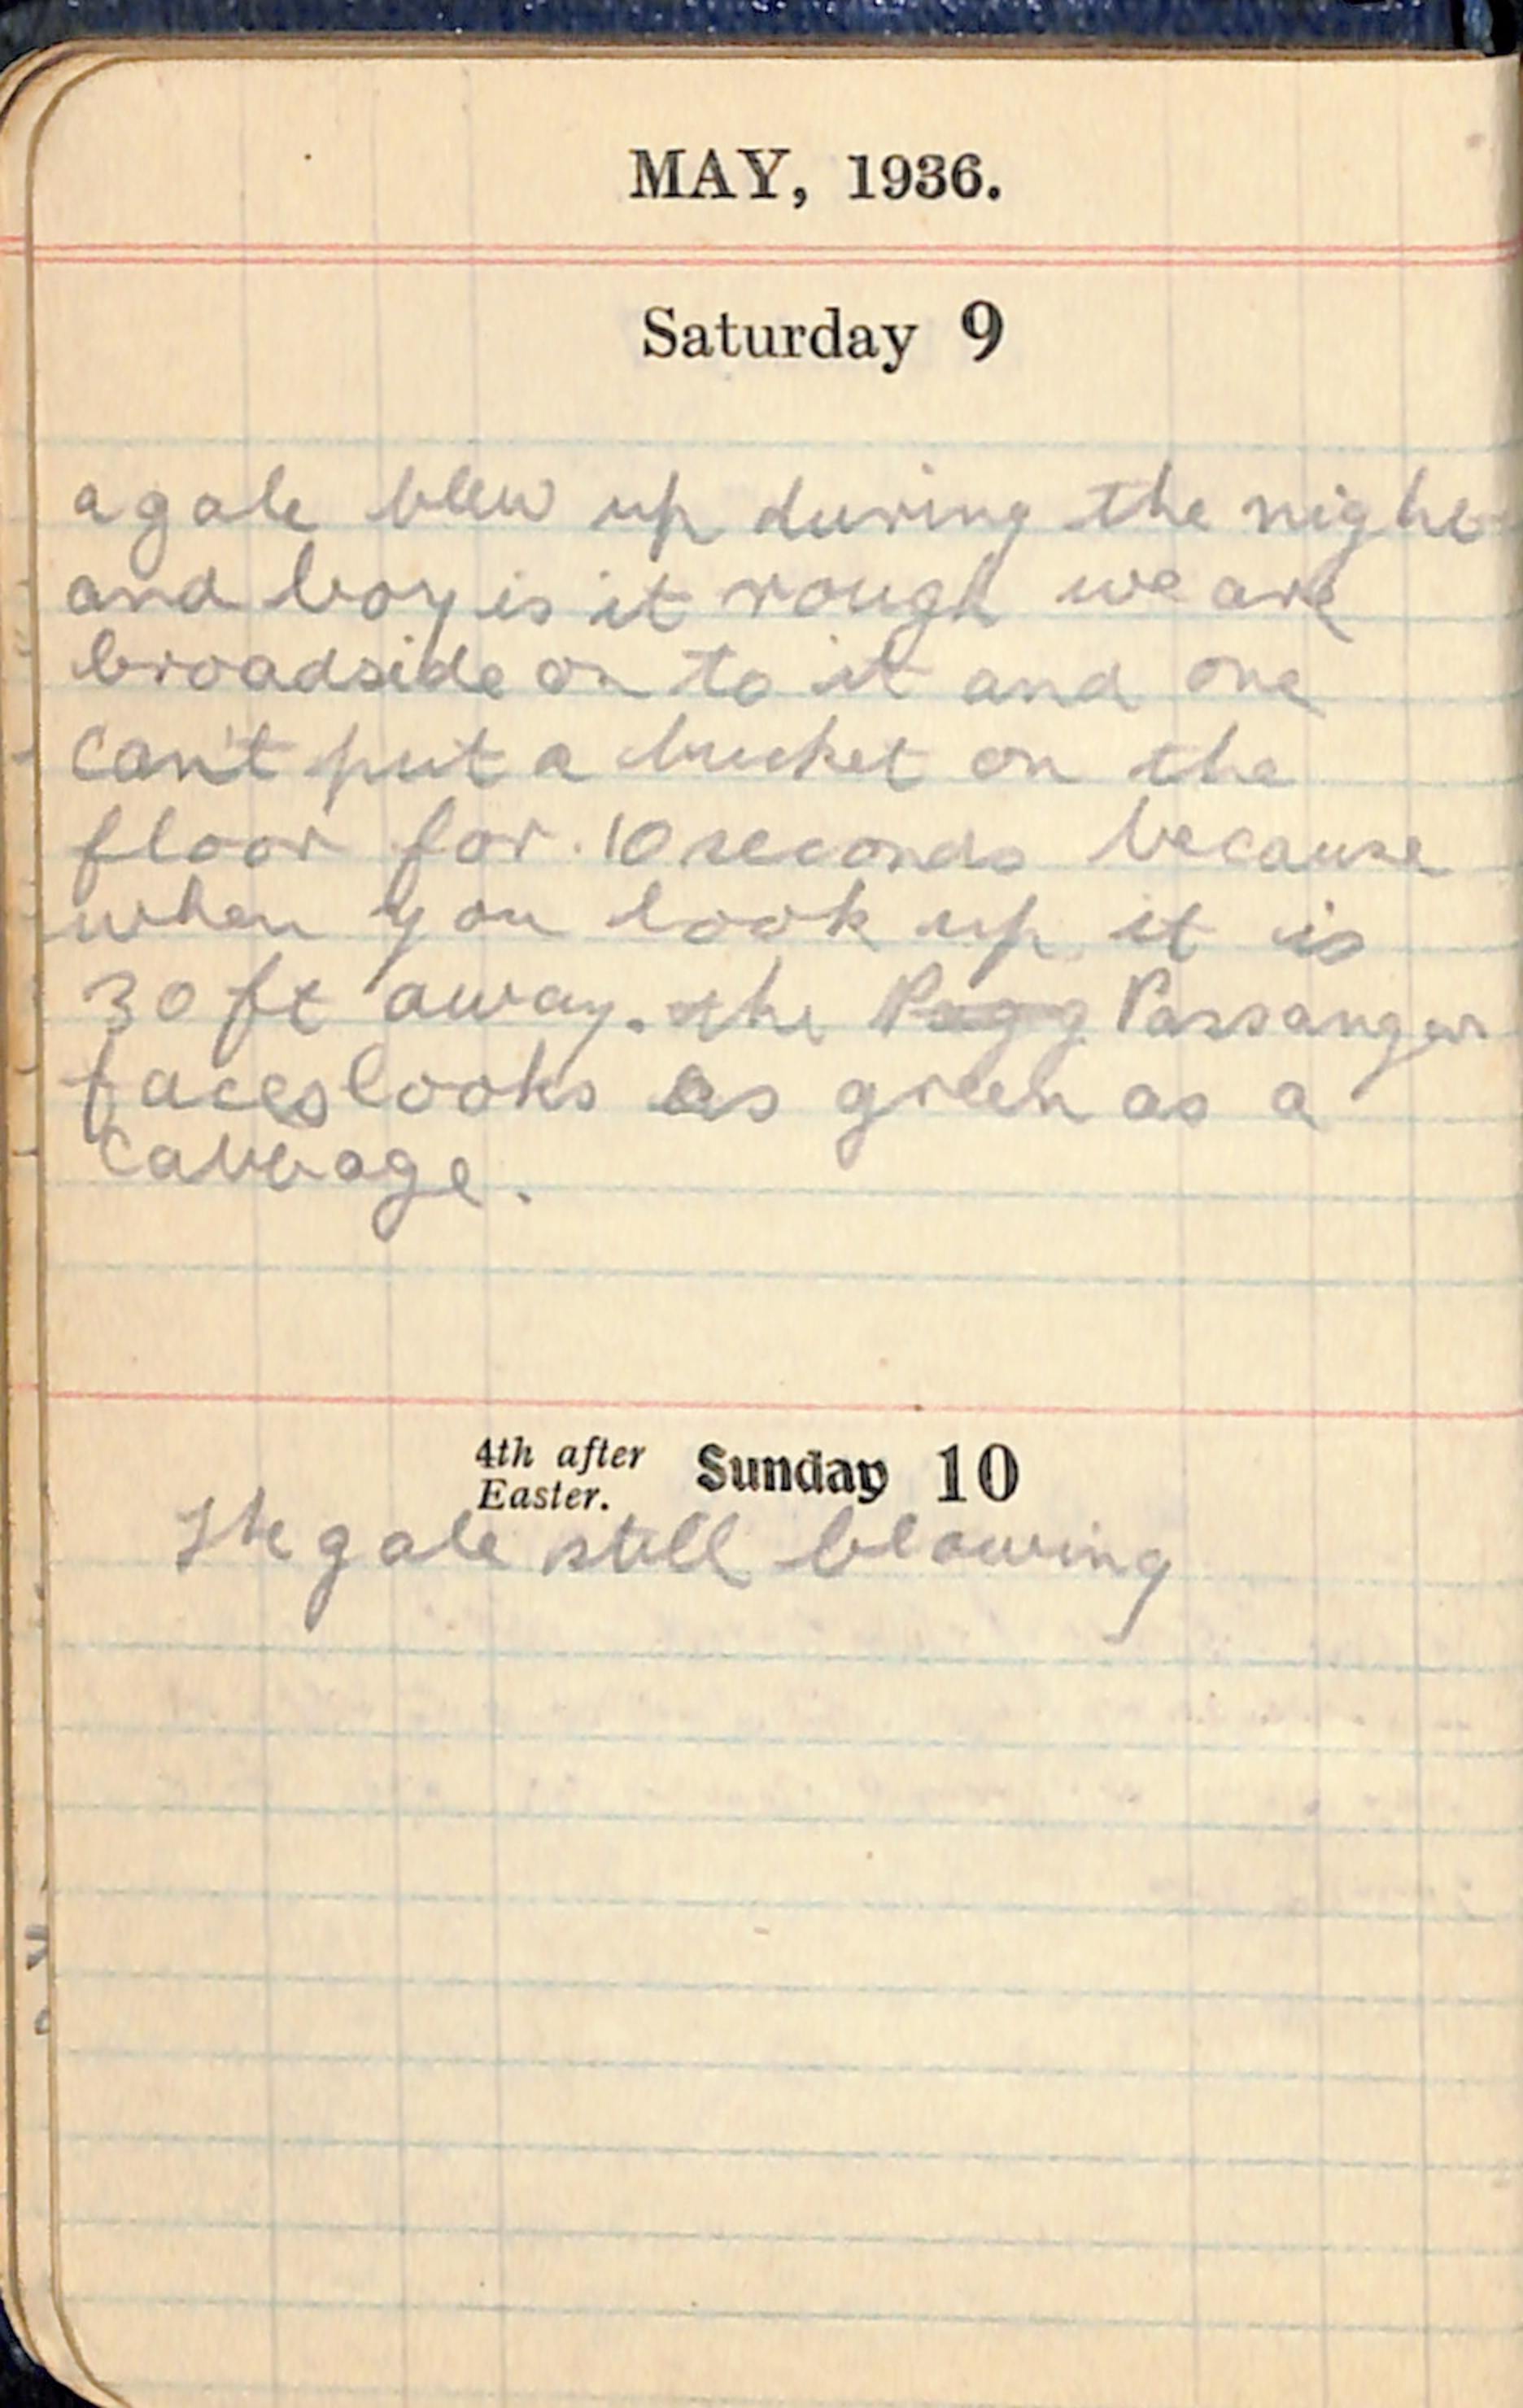 MAY, 1936.
Saturday 9
a gale blew up during the night
and boy is it rough we are
broadside on to it and one
can't put a bucket on the
floor for 10 seconds because
when you look up it is
30 ft away. the Passanger
faces looks as green as a
cabbage.
4th after
Easter. Sunday 10
The gale still blowing